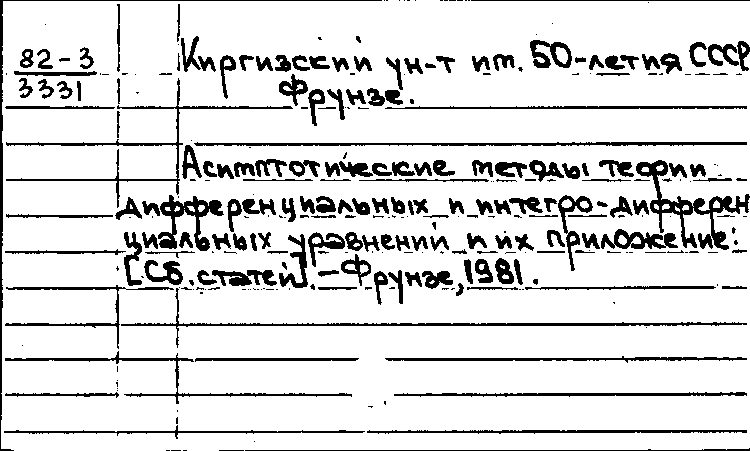 82-3
3331
Киргизский ун-т им. 50-летия СССР
Фрунзе.
Асимптотические методы теории
дифференциальных и интегро-дифферен
циальных уравнений и их приложение:
[Сб. статей]. - Фрунзе, 1981.